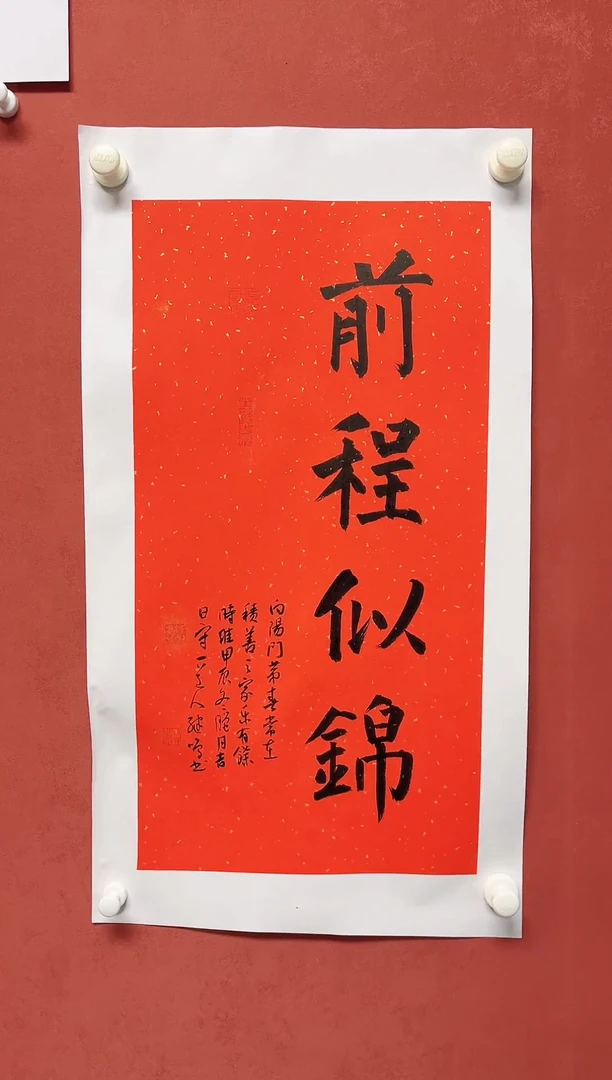 前程似錦
向陽門第春常在
積善之家樂有餘
時維甲辰冬臘月吉
日守一道人 書